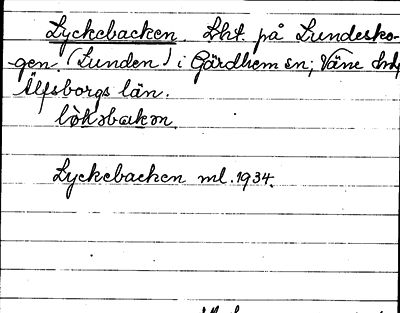 Lyckebacken. Lht. på Lundesko-
gen (Lunden) i Gärdhem sn; Väne hd,
Älfsborgs län.
Lyckebacken ml. 1934.